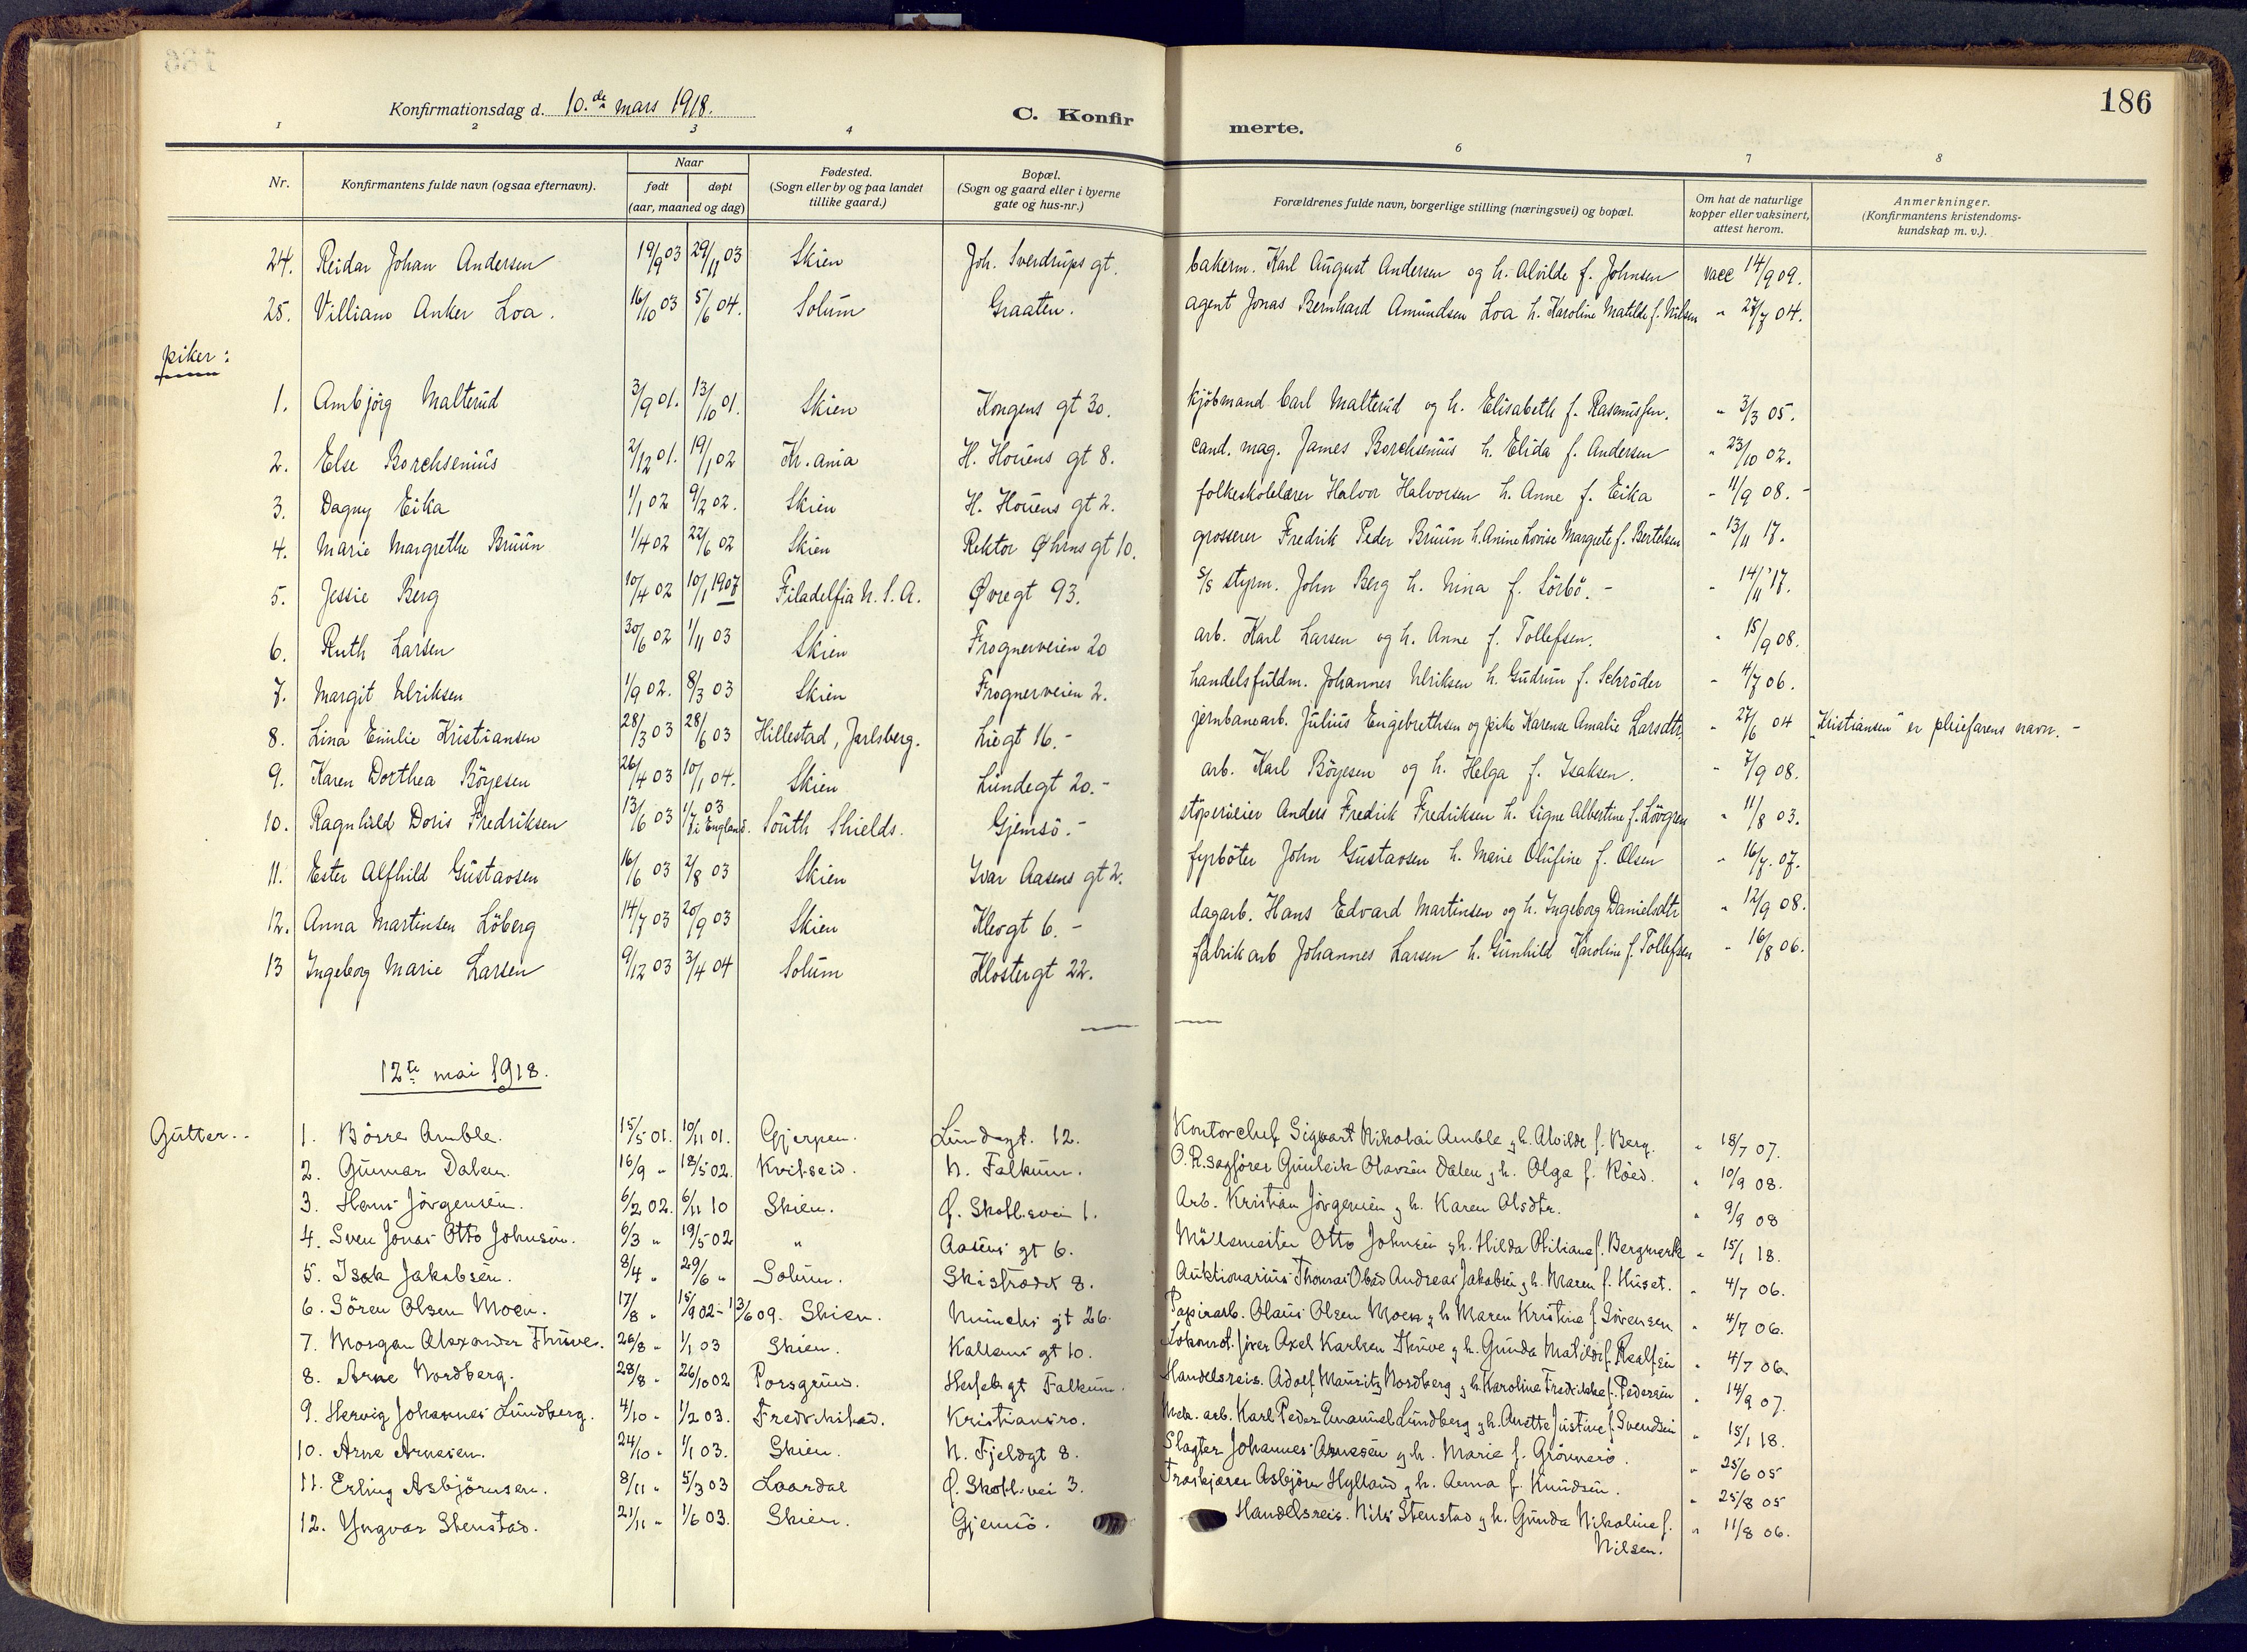 186
Konfirmationsdag d. 10.de mars 1918.
C. Konfirmerte.
1 2 3 4 6 7 8
Nr.
Konfirmantens fulde navn (ogsaa efternavn).
Naar
født døpt
(aar, maaned og dag)
Fødested.
(Sogn eller by og paa landet
tillike gaard.)
Bopæl.
(Sogn og gaard eller i byerne
gate og hus-nr.)
Forældrenes fulde navn, borgerlige stilling (næringsvei) og bopæl.
Om hat de naturlige
kopper eller vaksinert,
attest herom.
Anmerkninger.
(Konfirmantens kristendoms-
kundskap m. v.).
24. Reidar Johan Andersen 19/9 03 29/11 03 Skien Joh. Sverdrups gt. bakerm. Karl August Andersen og h. Alvilde f. Johnsen vacc 14/9 09.
25. Villiam Anker Loa. 16/10 03 5/6 04. Solum Graaten. agent Jonas Bernhard Amundsen Loa h. Karoline Matilde f. Nilsen " 27/7 04.
piker:
1. Ambjörg Malterud 3/9 01. 13/10 01. Skien Kongens gt 30. kjöbmand Carl Malterud og h. Elisabeth f. Rasmussen. " 3/3 05.
2. Else Borchsenius 2/12 01. 19/1 02 Kr.ania H. Houens gt 8. cand. mag. James Borchsenius h. Elida f. Andersen " 23/10 02.
3. Dagny Eika 1/1 02 9/2 02. Skien H. Houens gt 2. folkeskolelærer Halvor Halvorsen h. Anne f. Eika " 11/9 08. -
4. Marie Margrethe Bruun 1/4 02 22/6 02 Skien Rektor Ørns gt 10. grosserer Fredrik Peder Bruun h. Anine Lovise Margrete f. Bertelsen " 13/11 17.
5. Jessie Berg 10/4 02 10/1 1907 Filadelfia U.S.A. Øvregt 93. S/S styrm. John Berg h. Nina f. Sörbö. - " 14/11 '17.
6. Ruth Larsen 30/6 02 1/11 03 Skien Frognerveien 20 arb. Karl Larsen og h. Anne f. Tollefsen. " 15/9 08.
7. Margit Ulriksen 1/9 02. 8/3 03 Skien Frognerveien 2. handelsfuldm. Johannes Ulriksen h. Gudrun f. Schröder " 4/7 06.
8. Lina Emilie Kristiansen 28/3 03 28/6 03 Hillestad, Jarlsberg. Liegt 16.- jernbanearb. Julius Engebrethsen og pike Karense Amalie Larsdtr. " 27/6 04 "Kristiansen" er pleiefarens navn. -
9. Karen Dorthea Böyesen 26/4 03 10/1 04. Skien Lundegt 20.- arb. Karl Böyesen og h. Helga f. Isaksen. " 7/9 08.
10. Ragnhild Doris Fredriksen 13/6 03 1/7 03 i England. South Shields. Gjemsö.- stöperieier Anders Fredrik Fredriksen h. Signe Albertine f. Lövgren " 11/8 03.
11. Ester Alfhild Gustavsen 16/6 03 2/8 03 Skien Ivar Aasens gt 2. fyrböter John Gustavsen h. Marie Olufine f. Olsen " 16/7. 07.
12. Anna Martinsen Löberg 14/7 03 20/9 03 Skien Klevgt 6.- dagarb. Hans Edvard Martinsen og h. Ingeborg Danielsdtr " 12/9 08.
13 Ingeborg Marie Larsen 9/12 03 3/4 04 Solum Klostergt 22. fabrikarb Johannes Larsen h. Gunhild Karoline f. Tollefsen " 16/8 06.
12te mai 1918.
Gutter..
1. Börre Amble. 15/5 01. 10/11 01. Gjerpen. Lundegt. 12. Kontorchef Sigvart Nikolai Amble g h. Alvilde f. Berg. " 18/7 07.
2. Gunnar Dalen. 16/9 " 18/5 02. Kviteseid. N. Falkum. O.R.sagförer Gunleik Olavsen Dalen g h. Olga f. Röed. " 10/9 08.
3. Hans Jörgensen. 6/2 02. 6/11 10 Skien. Q. Skotl.vei 1. Arb. Kristian Jörgensen g h. Karen Olsdtr. " 9/9 08
4. Sven Jonas Otto Johnsen. 6/3 " 19/5 02 " Aasens gt 6. Otto Johnsen g h. Hilda Otiliana f. Bergmerk " 15/1 18.
5. Isak Jakobsen. 8/4 " 29/6 " Solum. Skistredet 8. Auktionarius Thomas Obed Andreas Jakobsen g h. Maren f. Huset. " 4/7 06.
6. Sören Olsen Moen. 17/8 " 15/9 02 - 13/6 09. Skien. Muncks gt 26. Papirarb. Olaus Olsen Moen g h Maren Kristine f. Sörensen " 4/7 06.
7. Morgan Alexander Thrüve. 26/8 " 1/1 03 Skien. Kallens gt 10. Lokomot.förer Axel Karlsen Thrüve g h. Gunda Matilde f. Realfsen " 4/7 06.
8. Arne Nordberg. 28/8 " 26/10 02 Porsgrund. Falkum. Handelsreis. Adolf Mauritz Nordberg g h. Karoline Fredrikke f. Pedersen " 14/9 07.
9. Hervig Johannes Lundberg. 4/10 " 1/2 03. Fredrikstad. Kristiansro. Mek. arb. Karl Peder Emanuel Lundberg g h. Anette Justine f. Svendsen " 15/1 18.
10. Arne Arnesen. 24/10 " 1/1 03. Skien. N. Fjeldgt 8. Slagter Johannes Arnesen g h. Marie f. Grönnerö. " 25/6 05
11. Erling Asbjörnsen. 8/11 " 5/3 03 Laardal Q. Skotl.vei 3. Træskjærer Asbjörn Hylland g h. Anna f. Knudsen. " 25/8 05
12. Yngvar Stenstad. 21/11 " 1/6 03. Skien. Gjemsö. Handelsreis. Nils Stenstad g h. Gunda Nikoline f. " 11/8 06.
Nilsen.